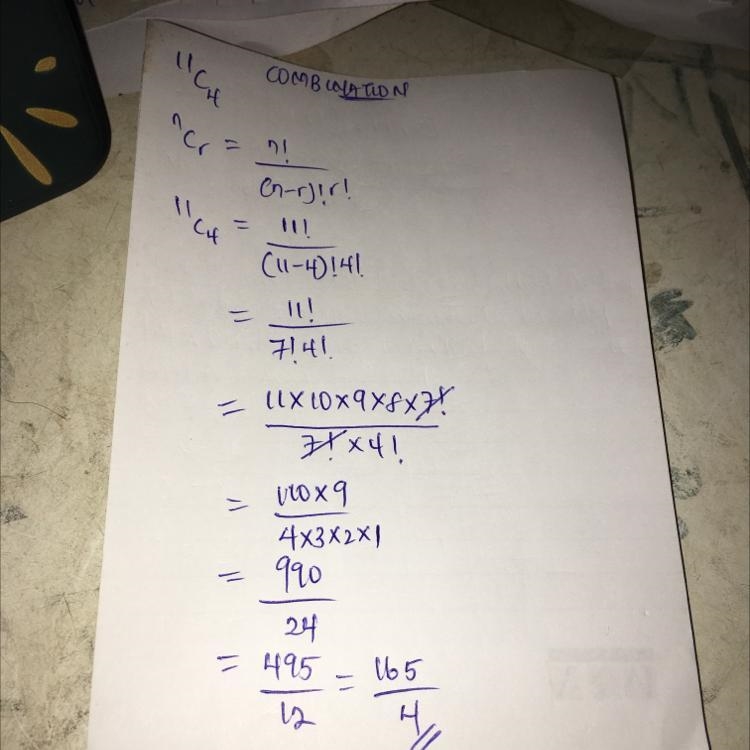 ¹¹C₄ COMBINATION
ⁿCᵣ = n! / (n-r)!r!
¹¹C₄ = 11! / (11-4)!4!
= 11! / 7!4!
= 11×10×9×8×7! / 7!×4!
= 110×9 / 4×3×2×1
= 990 / 24
= 495 / 12 = 165 / 4